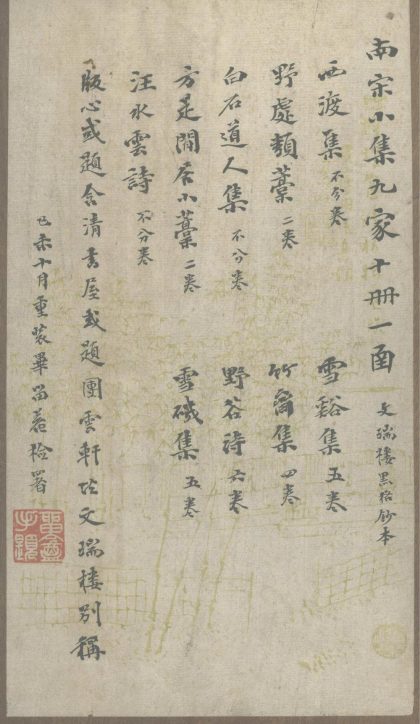 南宋小集九家十冊一函 文瑞樓黑格鈔本
西渡集 不分卷 雪谿集 五卷
野處類藁 二卷 竹齋集 四卷
白石道人集 不分卷 野谷詩 六卷
方是閒居小藁 二卷 雪磯集 五卷
汪水雲詩 不分卷
版心或題含清書屋或題團雲軒均文瑞樓別稱
乙未十月重裝畢留菴檢署